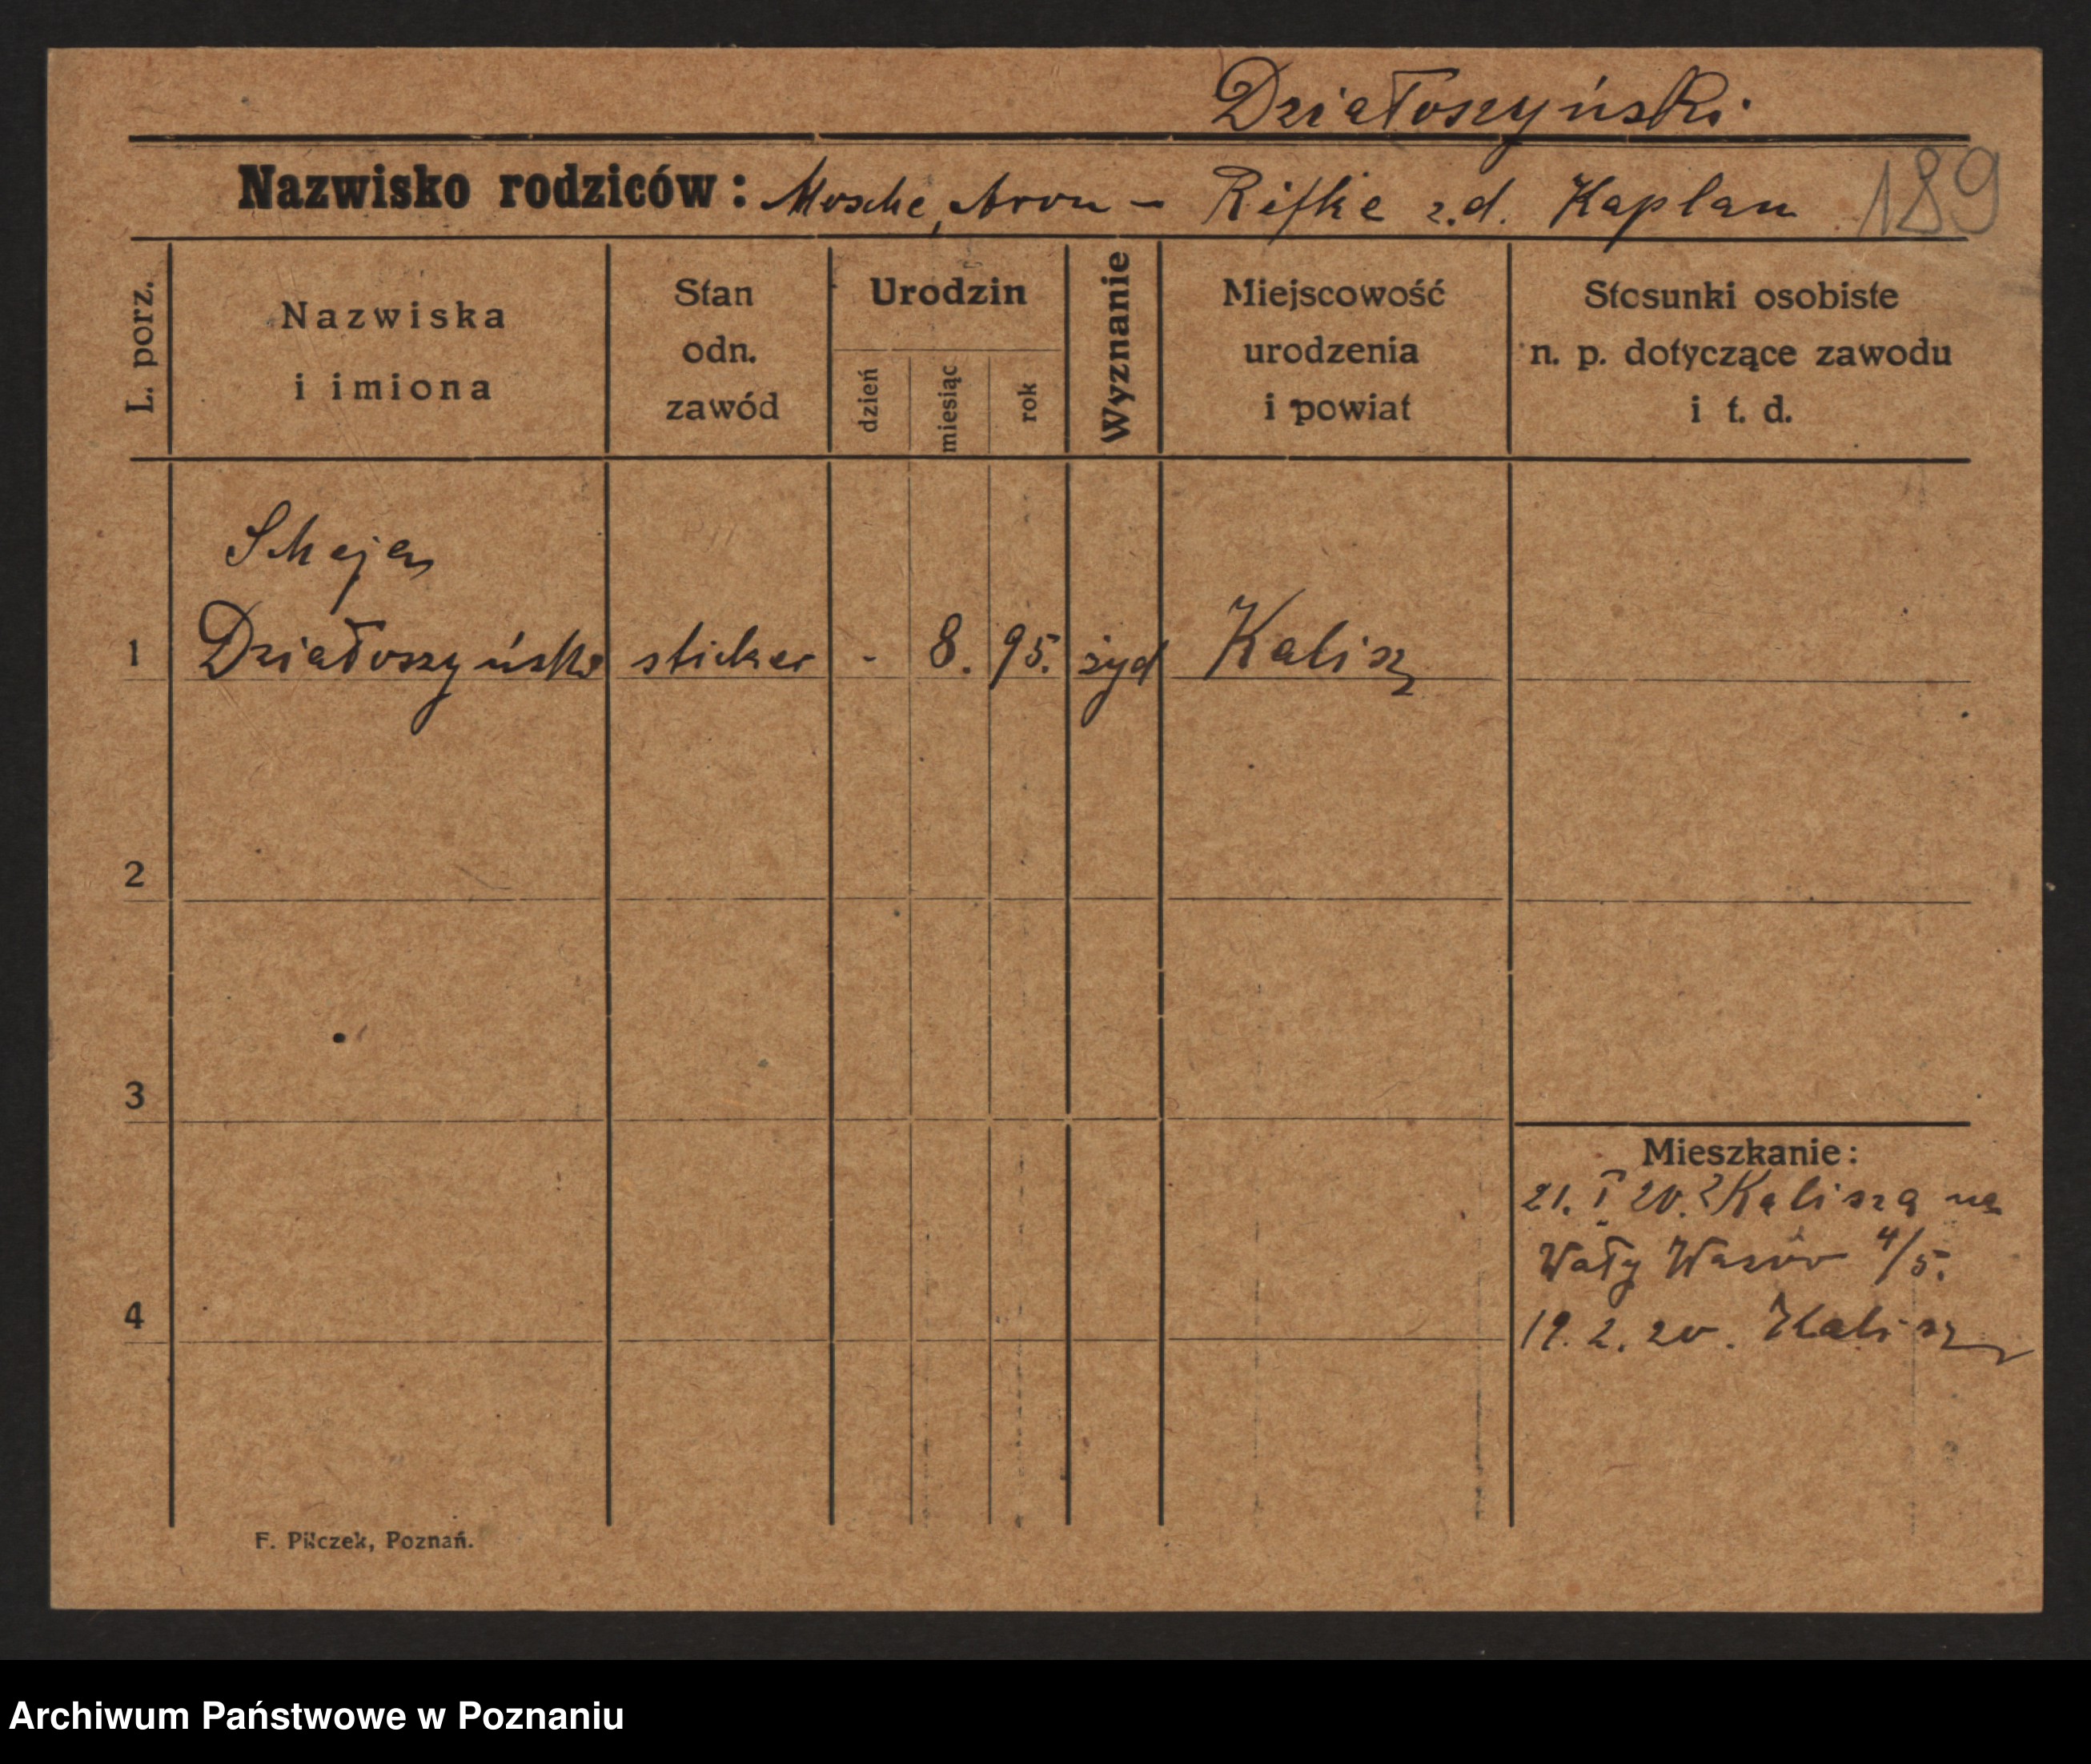 Działoszyński
Nazwisko rodziców: Mosche, Aron – Rifke z.d. Kaplan 189
L. porz.
Nazwiska
i imiona
Stan
odn.
zawód
Urodzin
dzień
miesiąc
rok
Wyznanie
Miejscowość
urodzenia
i powiat
Stosunki osobiste
n. p. dotyczące zawodu
i t. d.
1 Działoszyński sticker - 8. 95. żyd Kalisz
2
3
4
Mieszkanie:
21. I 20. z Kalisza na
Wały Wazów 4/5.
19. 2. 20. Kalisz
F. Pilczek, Poznań.
Archiwum Państwowe w Poznaniu